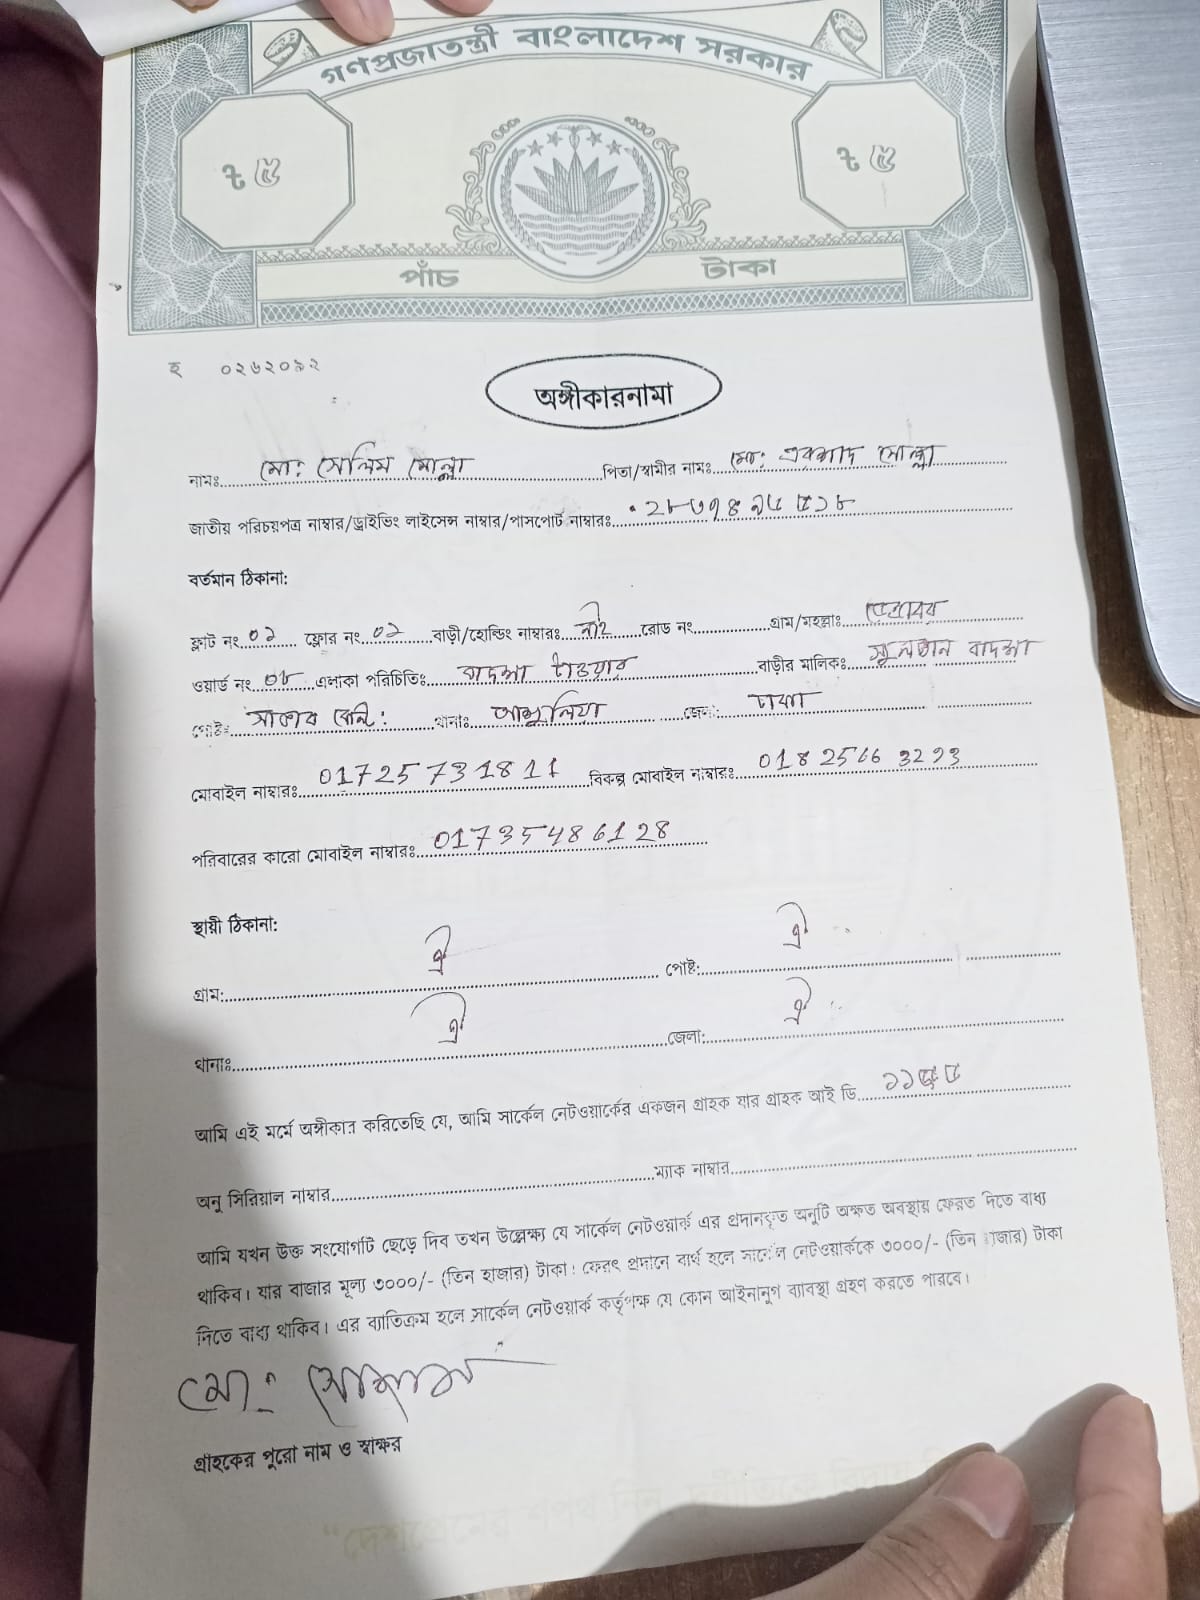 গণপ্রজাতন্ত্রী বাংলাদেশ সরকার
৳ ৫ ৳ ৫
পাঁচ টাকা
হ ০২৬২০৯২
অঙ্গীকারনামা
নামঃ মো: সেলিম মোল্লা পিতা/স্বামীর নামঃ মো: এরশাদ মোল্লা
জাতীয় পরিচয়পত্র নাম্বার/ড্রাইভিং লাইসেন্স নাম্বার/পাসপোর্ট নাম্বারঃ ২৮৩৭৪৯৫৫১৮
বর্তমান ঠিকানা:
ফ্লাট নং ০১ ফ্লোর নং ০১ বাড়ী/হোল্ডিং নাম্বারঃ নাই রোড নং গ্রাম/মহল্লাঃ
ওয়ার্ড নং ০৮ এলাকা পরিচিতিঃ বাদশা টাওয়ার বাড়ীর মালিকঃ সুলতান বাদশা
পোষ্টঃ থানাঃ আশুলিয়া জেলাঃ ঢাকা
মোবাইল নাম্বারঃ 01725731811 বিকল্প মোবাইল নাম্বারঃ
পরিবারের কারো মোবাইল নাম্বারঃ 01735486128
স্থায়ী ঠিকানা:
গ্রাম: ঐ পোষ্ট: ঐ
থানাঃ ঐ জেলা: ঐ
আমি এই মর্মে অঙ্গীকার করিতেছি যে, আমি সার্কেল নেটওয়ার্কের একজন গ্রাহক যার গ্রাহক আই ডি ১১৫৫
অনু সিরিয়াল নাম্বার ম্যাক নাম্বার
আমি যখন উক্ত সংযোগটি ছেড়ে দিব তখন উল্লেক্ষ্য যে সার্কেল নেটওয়ার্ক এর প্রদানকৃত অনুটি অক্ষত অবস্থায় ফেরত দিতে বাধ্য
থাকিব। যার বাজার মূল্য ৩০০০/- (তিন হাজার) টাকা। ফেরৎ প্রদানে ব্যর্থ হলে সার্কেল নেটওয়ার্ককে ৩০০০/- (তিন হাজার) টাকা
দিতে বাধ্য থাকিব। এর ব্যাতিক্রম হলে সার্কেল নেটওয়ার্ক কর্তৃপক্ষ যে কোন আইনানুগ ব্যাবস্থা গ্রহণ করতে পারবে।
মো:
গ্রাহকের পুরো নাম ও স্বাক্ষর